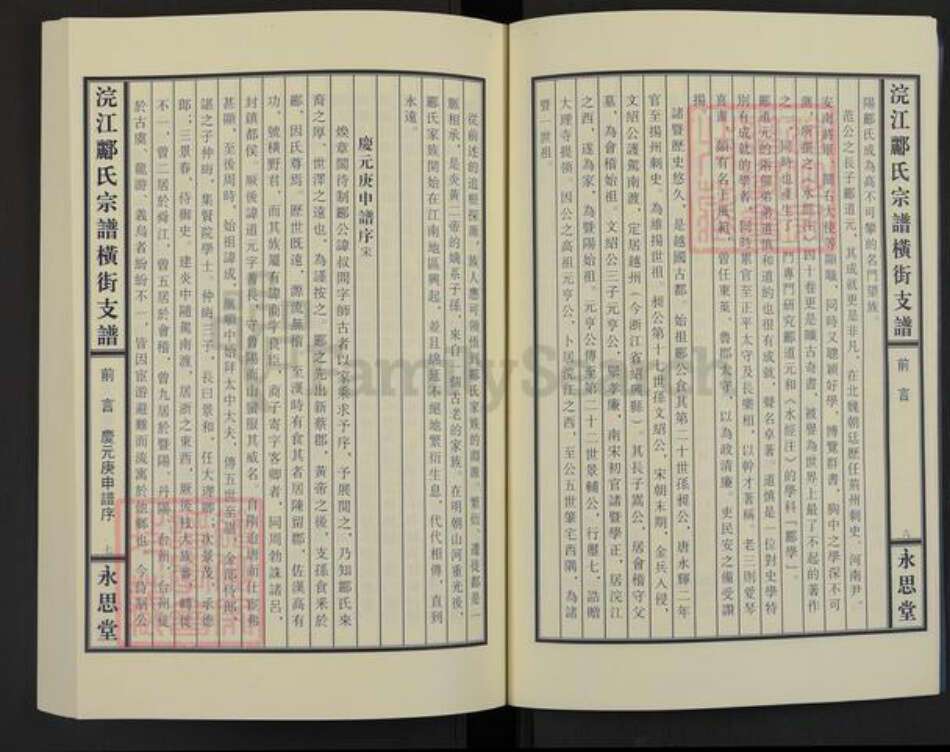 浣江酈氏宗譜橫街支譜
前言
八
永思堂
陽酈氏成為高不可攀的名門望族。
范公之長子酈道元，其成就更是非凡，在北魏朝廷歷任荊州刺史、河南尹、
安南將軍、關右大使等顯職，同時又聰穎好學，博覽群書，胸中之學深不可
所撰之《水經注》四十卷更是曠古奇書，被譽為世界上最了不起的著作
之一，同時也產生了一門專門研究酈道元和《水經注》的學科『酈學』。
酈道元的兩個弟弟道慎和道約也很有成就，聲名卓著。道慎是一位對史學特
別有成就的學者，同時累官至正平太守及長樂相，以幹才著稱。老三則愛琴
喜書，頗有名士風範，曾任東萊、魯郡太守，以為政清廉、吏民安之備受讚
揚。
諸暨歷史悠久，是越國古都。始祖酈公食其第二十世孫昶公，唐永輝二年
官至揚州刺史。為維揚世祖。昶公第十七世孫文紹公，宋朝末期，金兵入侵，
文紹公護駕南渡，定居越州（今浙江省紹興縣）。其長子嵩公，居會稽守父
墓，為會稽始祖。文紹公三子元亨公，舉孝廉，南宋初官諸暨學正，居浣江
之西，遂為家，為暨陽始祖。元亨公傳至第二十二世景輔公，行慶七，誥贈
大理寺提領。因公之高祖元亨公，卜居浣江之西，至公五世肇宅西隅，為諸
暨一世祖。
從前述的追根探源，族人應可領悟到酈氏家族的淵源、繁衍、遷徙都是一
脈相承，是炎黃二帝的嫡系子孫，來自一個古老的家族。在明朝山河重光後，
酈氏家族開始在江南地區興起，並且綿延不絕地繁衍生息，代代相傳，直到
永遠。
慶元庚申譜序宋
煥章閣待制酈公諱叔問字師古者以家乘求予序，予展閱之，乃知酈氏來
裔之厚，世澤之遠也，為謹按之。酈之先出新蔡郡，黃帝之後，支孫食釆於
酈，因氏尊焉。歷世既遠，源流無稽。至漢時有食其者居陳留郡，佐漢高有
功，號橫野君，而其族屬有諱商字良臣，商子寄字客卿者，同周勃誅諸呂，
封鎮都侯。厥後諱道元字善長，守魯陽而山蠻服其威名。自隋迨唐而仕宦弗
甚顯，至後周時，始祖諱成，顯順中始拜太中太夫，傳五世至
諶之子仲晦，集賢院學士。仲晦三子，長曰景和，任大理卿；次景茂，承德
郎；三景春，侍御史。建炎中隨駕南渡，居浙之東西，厥後枝大族蕃，轉徙
不一，曾二居於舜江，曾五居於會稽，曾九居於暨陽。丹陽、台州、台州徒
於古虞、龍游、義烏者紛紛不一，皆因宦游避難而流寓於他鄉也。今為
浣江酈氏宗譜橫街支譜
前言　慶元庚申譜序
七
永思堂
FamilySearch